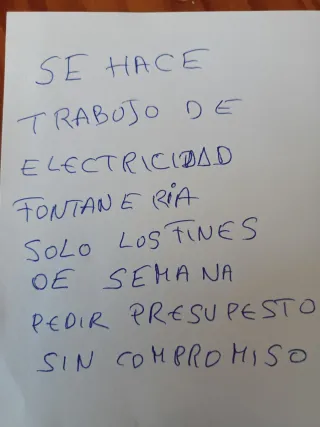 SE HACE
TRABUJO DE
ELECTRICIDAD
FONTANERIA
SOLO LOS FINES
DE SEMANA
PEDIR PRESUPESTO
SIN COMPROMISO